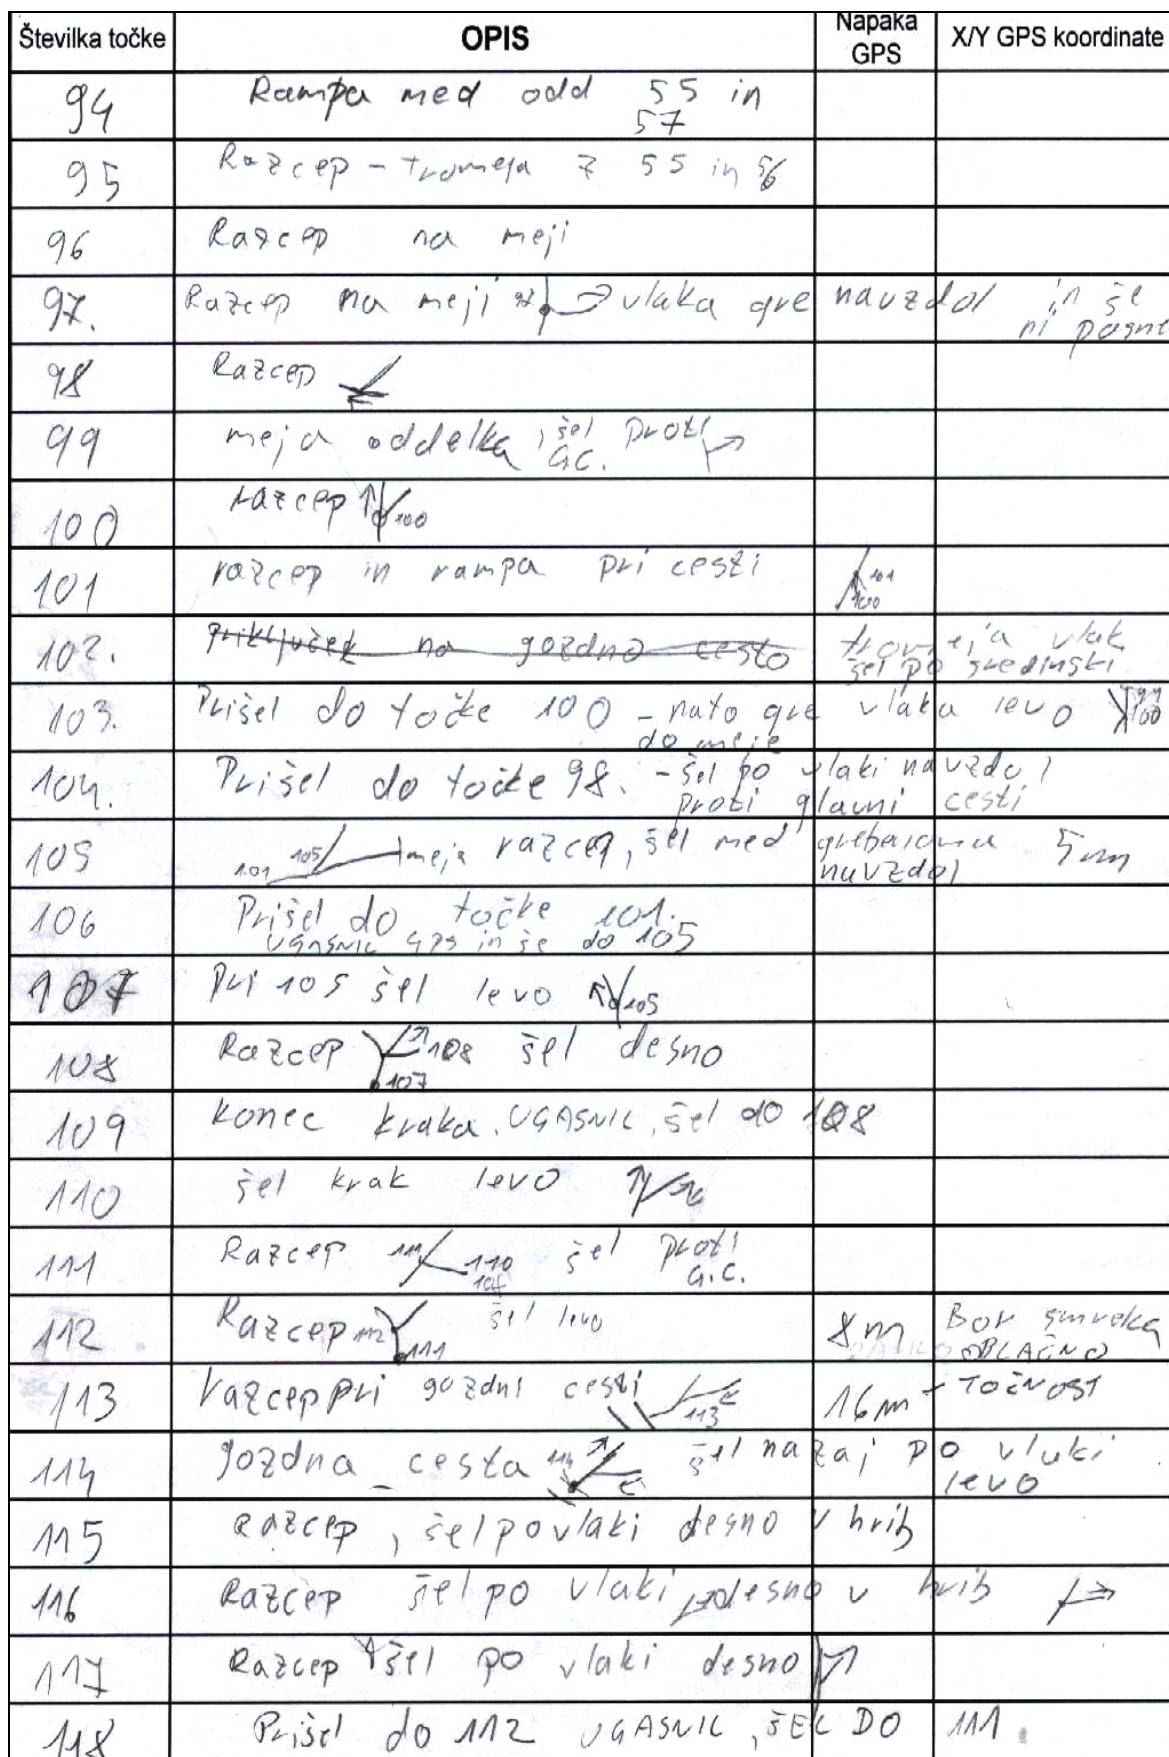 Številka točke OPIS Napaka GPS X/Y GPS koordinate
94 Rampa med odd 55 in
57
95 Razcep - tromeja z 55 in 56
96 Razcep na meji
97. Razcep na meji 97 vlaka gre navzdol in še
ni
98 Razcep
99 meja oddelka, šel proti
G.C.
100 razcep 100
101 razcep in rampa pri cesti 101
100
102. Priključek na gozdno cesto tromeja vlak
šel po sredinski
103. Prišel do točke 100 - nato gre vlaka levo 99
do meje 100
104. Prišel do točke 98. - šel po vlaki navzdol
proti glavni cesti
105 101 105 meja razcep, šel med grebenoma 5m
navzdol
106 Prišel do točke 101.
UGASNIL GPS in še do 105
107 Pri 105 šel levo 105
108 Razcep 108 šel desno
107
109 konec kraka. UGASNIL, šel do 108
110 šel krak levo
111 Razcep 111 110 šel proti
G.C.
112 Razcep 112 šel levo 8m Bor smreka
111 OBLAČNO
113 razcep pri gozdni cesti 113 16m - TOČNOST
114 gozdna cesta 114 šel nazaj po vlaki
levo
115 razcep, šel po vlaki desno v hrib
116 Razcep šel po vlaki desno v hrib
117 Razcep šel po vlaki desno
118 Prišel do 112 UGASNIL, ŠEL DO 111.